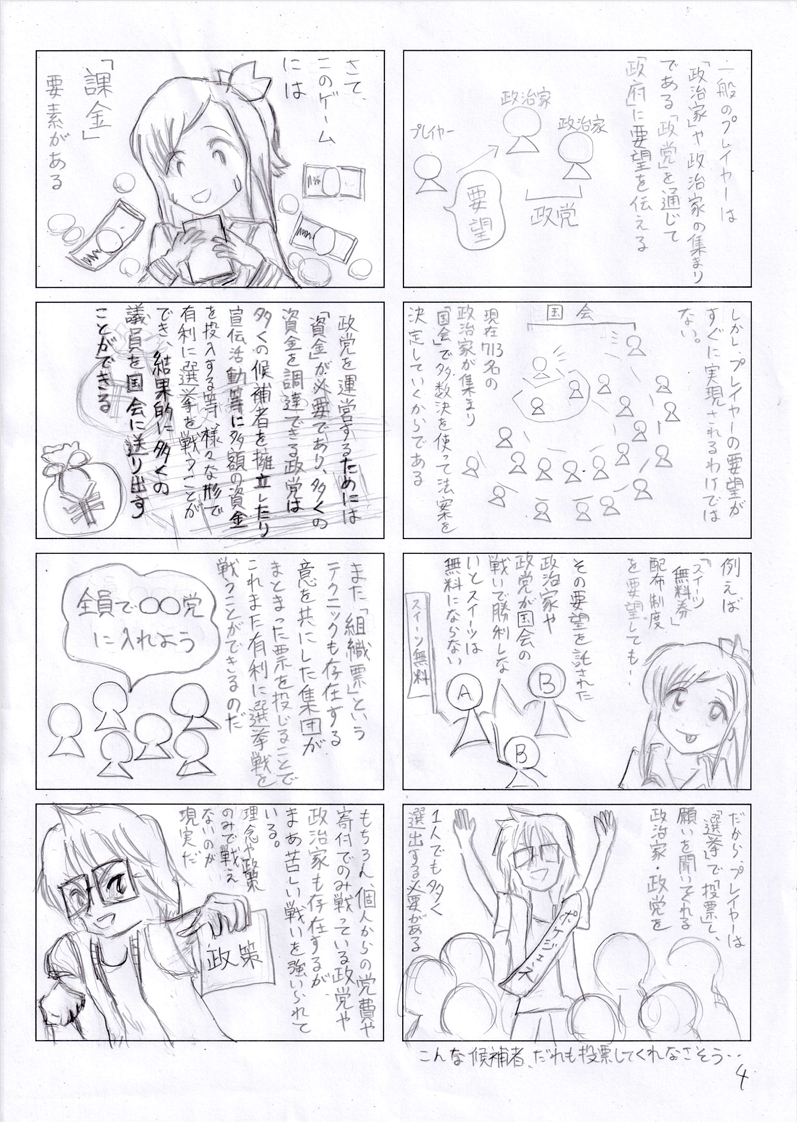 一般のプレイヤーは
「政治家」や政治家の集まり
である「政党」を通じて
「政府」に要望を伝える
政治家
政治家
プレイヤー
要望
政党
しかし、プレイヤーの要望が
すぐに実現されるわけでは
ない。
国会
現在713名の
政治家が集まり
「国会」で多数決を使って法案を
決定していくからである
例えば
「スイーツ
無料券
配布制度」
を要望しても‥
その要望を託された
政治家や
政党が国会の
戦いで勝利しな
いとスイーツは
無料にならない
スイーツ無料
A
B
B
だから、プレイヤーは
「選挙」で「投票」し、
願いを聞いてくれる
政治家・政党を
1人でも多く
選出する必要がある
ポケジェネ
こんな候補者、だれも投票してくれなさそう‥
さて、
このゲーム
には
「課金」
要素がある
政党を運営するためには
「資金」が必要であり、多くの
資金を調達できる政党は
多くの候補者を擁立したり
宣伝活動等に多額の資金
を投入する等、様々な形で
有利に選挙を戦うことが
でき、結果的に多くの
議員を国会に送り出す
ことができる
また「組織票」という
テクニックも存在する
意を共にした集団が
まとまった票を投じることで
これまた有利に選挙戦を
戦うことができるのだ
全員で〇〇党
に入れよう
もちろん、個人からの党費や
寄付でのみ戦っている政党や
政治家も存在するが、
まあ苦しい戦いを強いられて
いる。
理念や政策
のみで戦え
ないのが
現実だ
政策
4